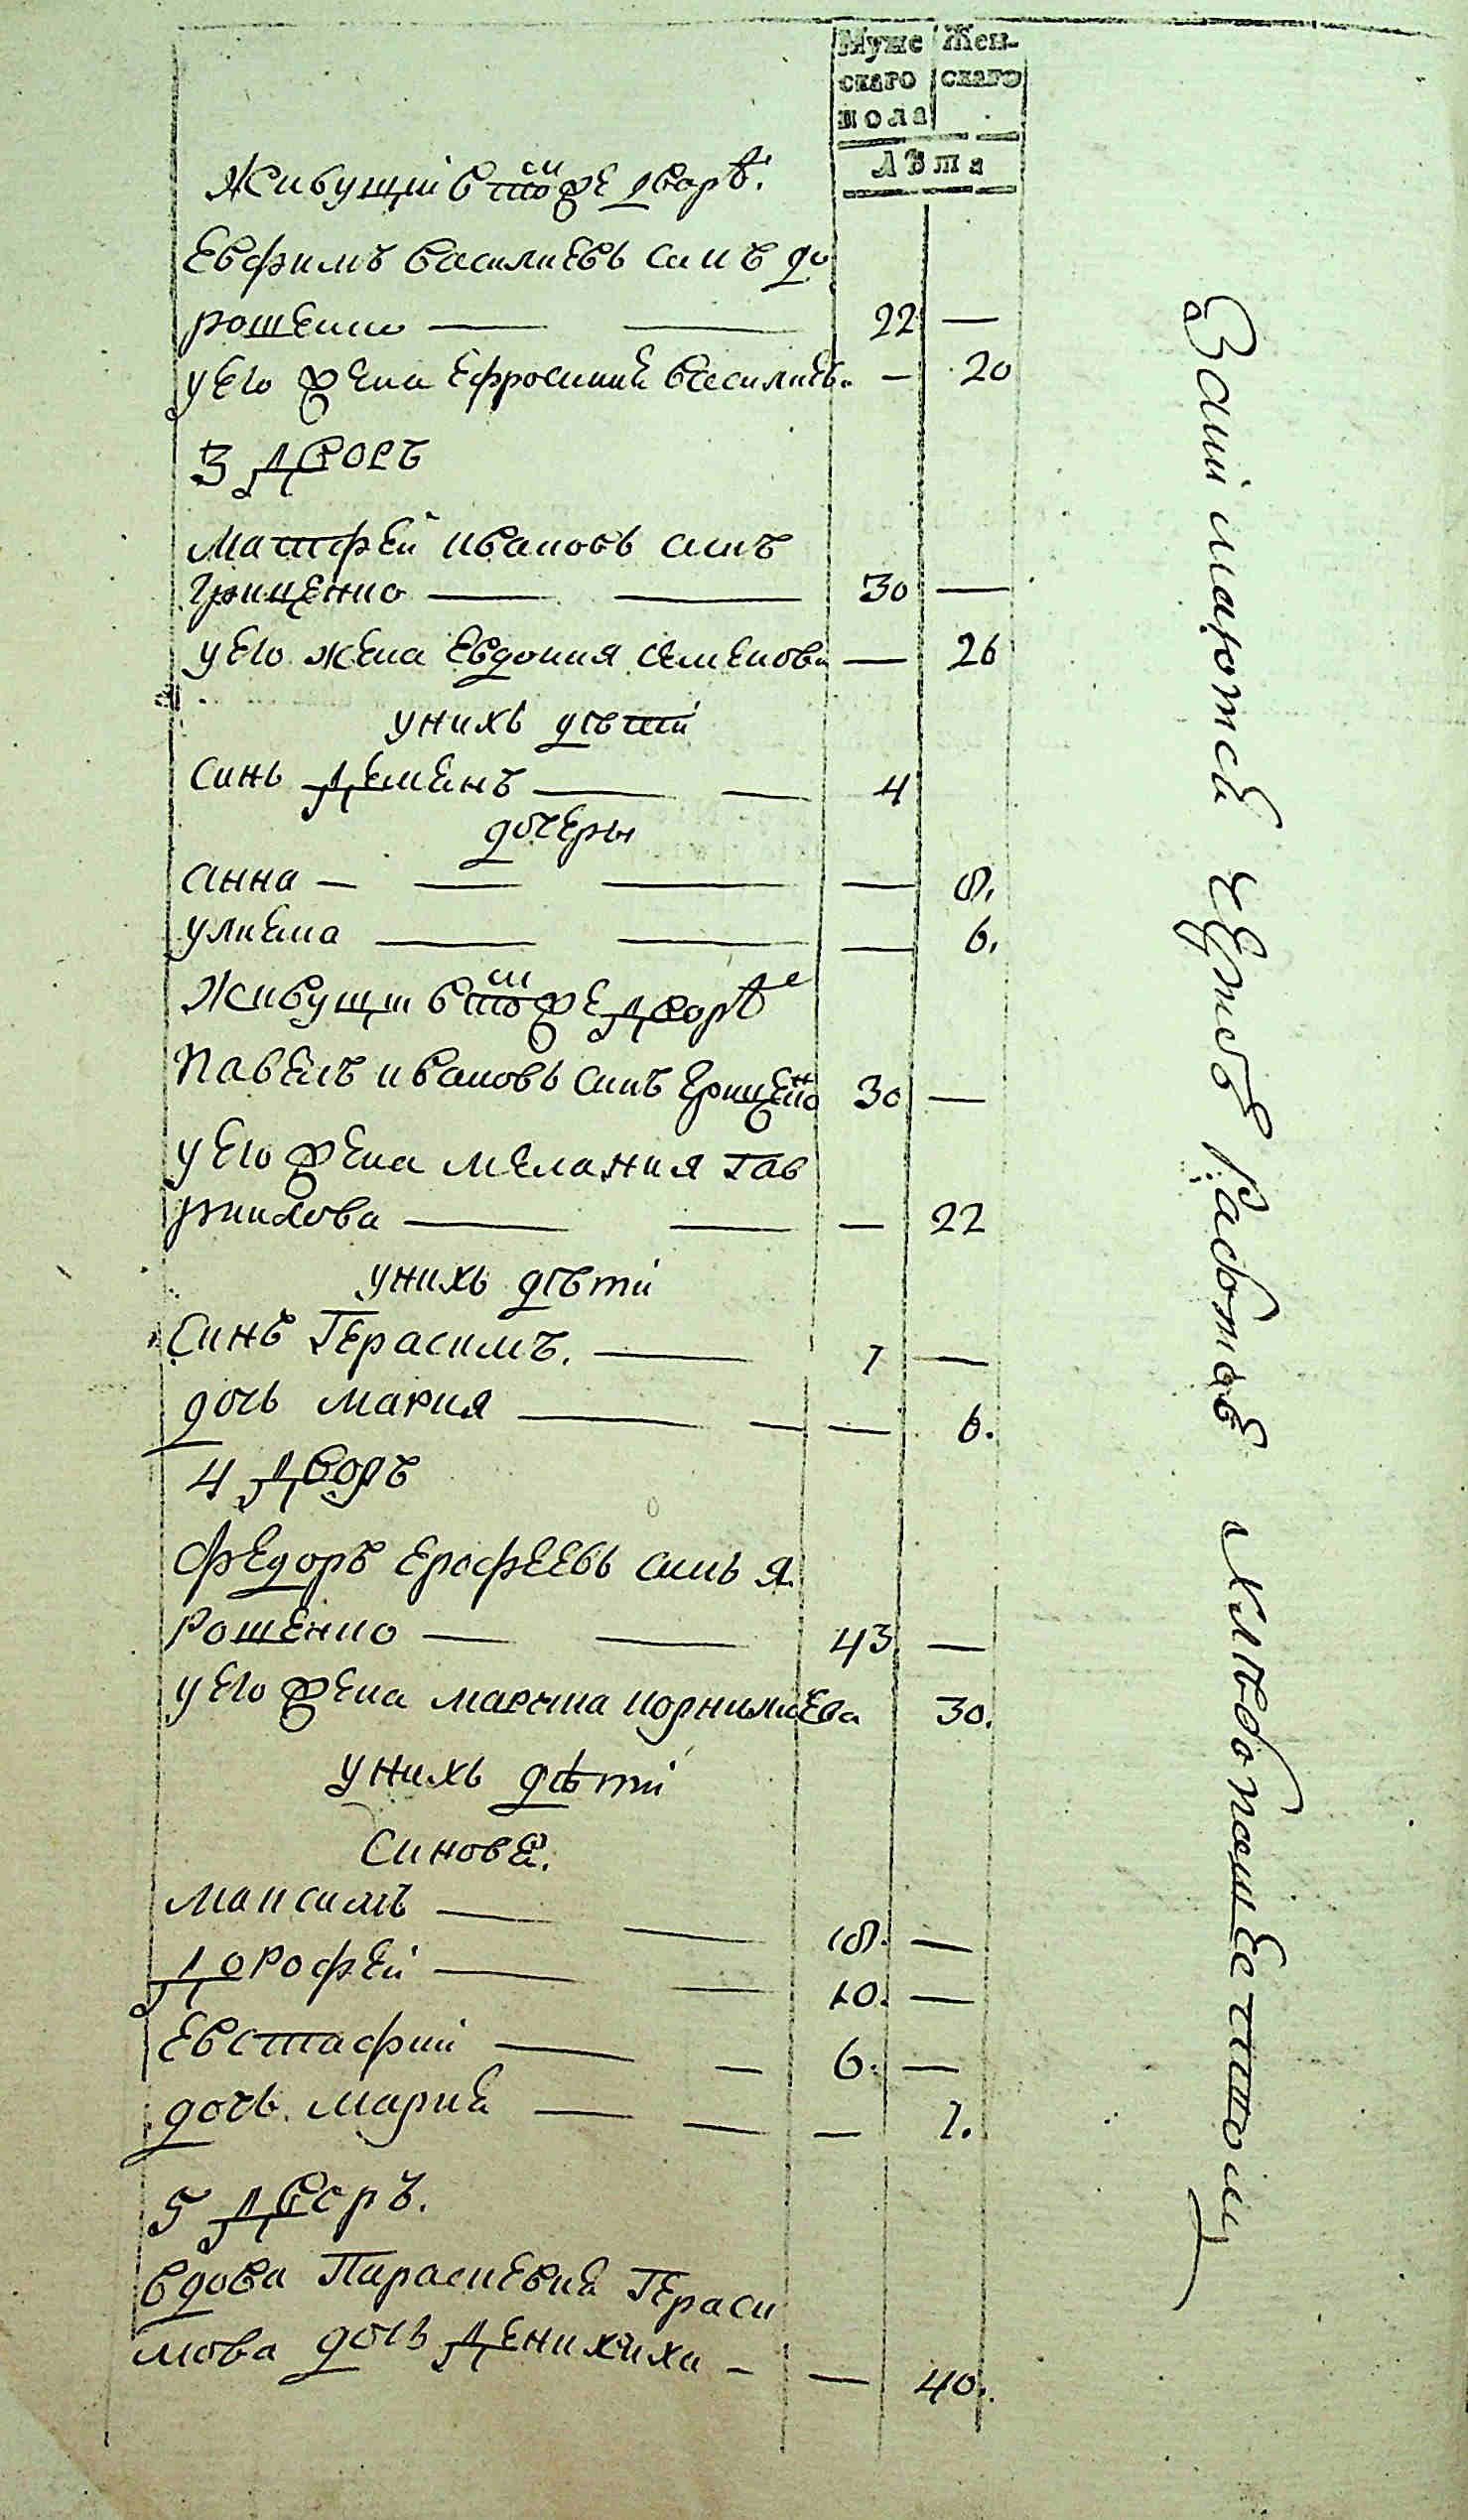 Муже Жен-
скаго скаго
пола
Лѣта
Живущій в томже дворѣ.
Евфимъ Василиевъ синъ до
рошенко — — 22 —
у его жена Ефросиния Василиев. — 20
3 Дворъ
Матфей Ивановъ синъ
Грищенко — — 30 —
у его жена Евдокия Семенова — 26
у нихъ дѣти
Синь Демянъ — — 4
дочеры
Анна — — — — 8.
Улияна — — — 6.
Живущи в томже дворѣ
Павелъ Ивановъ синъ Грищенко 30 —
у его жена Мелания Гав
риилова — — — 22
у нихъ дѣти
Синъ Герасимъ. — 7 —
дочь Мария — — — 6.
4 Дворъ
Федоръ Ерофеевь синь Я
рошенко — — 43 —
у его жена Марѳта Корнилиева 30.
у нихъ дѣти
Синовя.
Максимъ — — 18. —
Дорофей — — 10. —
Евстафий — — 6. —
дочь Мария — — — 1.
5 Дворъ.
Вдова Параскевия Гераси
мова дочь Денихиха — — 40.
работою хлѣбопашественною